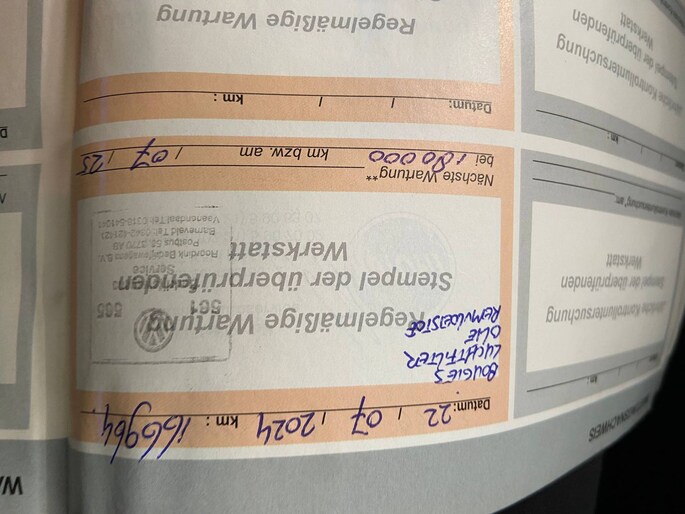 NACHWEIS
km :
Kontrolluntersuchung
Stempel der überprüfenden
Werkstatt
km :
Kontrolluntersuchung
Stempel der überprüfenden
Werkstatt
Datum: 22 / 07 / 2024 km : 166964
BOUGIES
LUCHTFILTER
OLIE
REMVLOEISTOF
Regelmäßige Wartung
Stempel der überprüfenden
Werkstatt
561 565
Service
Bedrijfswagens B.V.
Postbus 52, 3770 AB
Barneveld Tel:
Veenendaal Tel:
Nächste Wartung**
bei 180.000 km bzw. am / 07 / 25
Datum: / / km :
Regelmäßige Wartung
WA